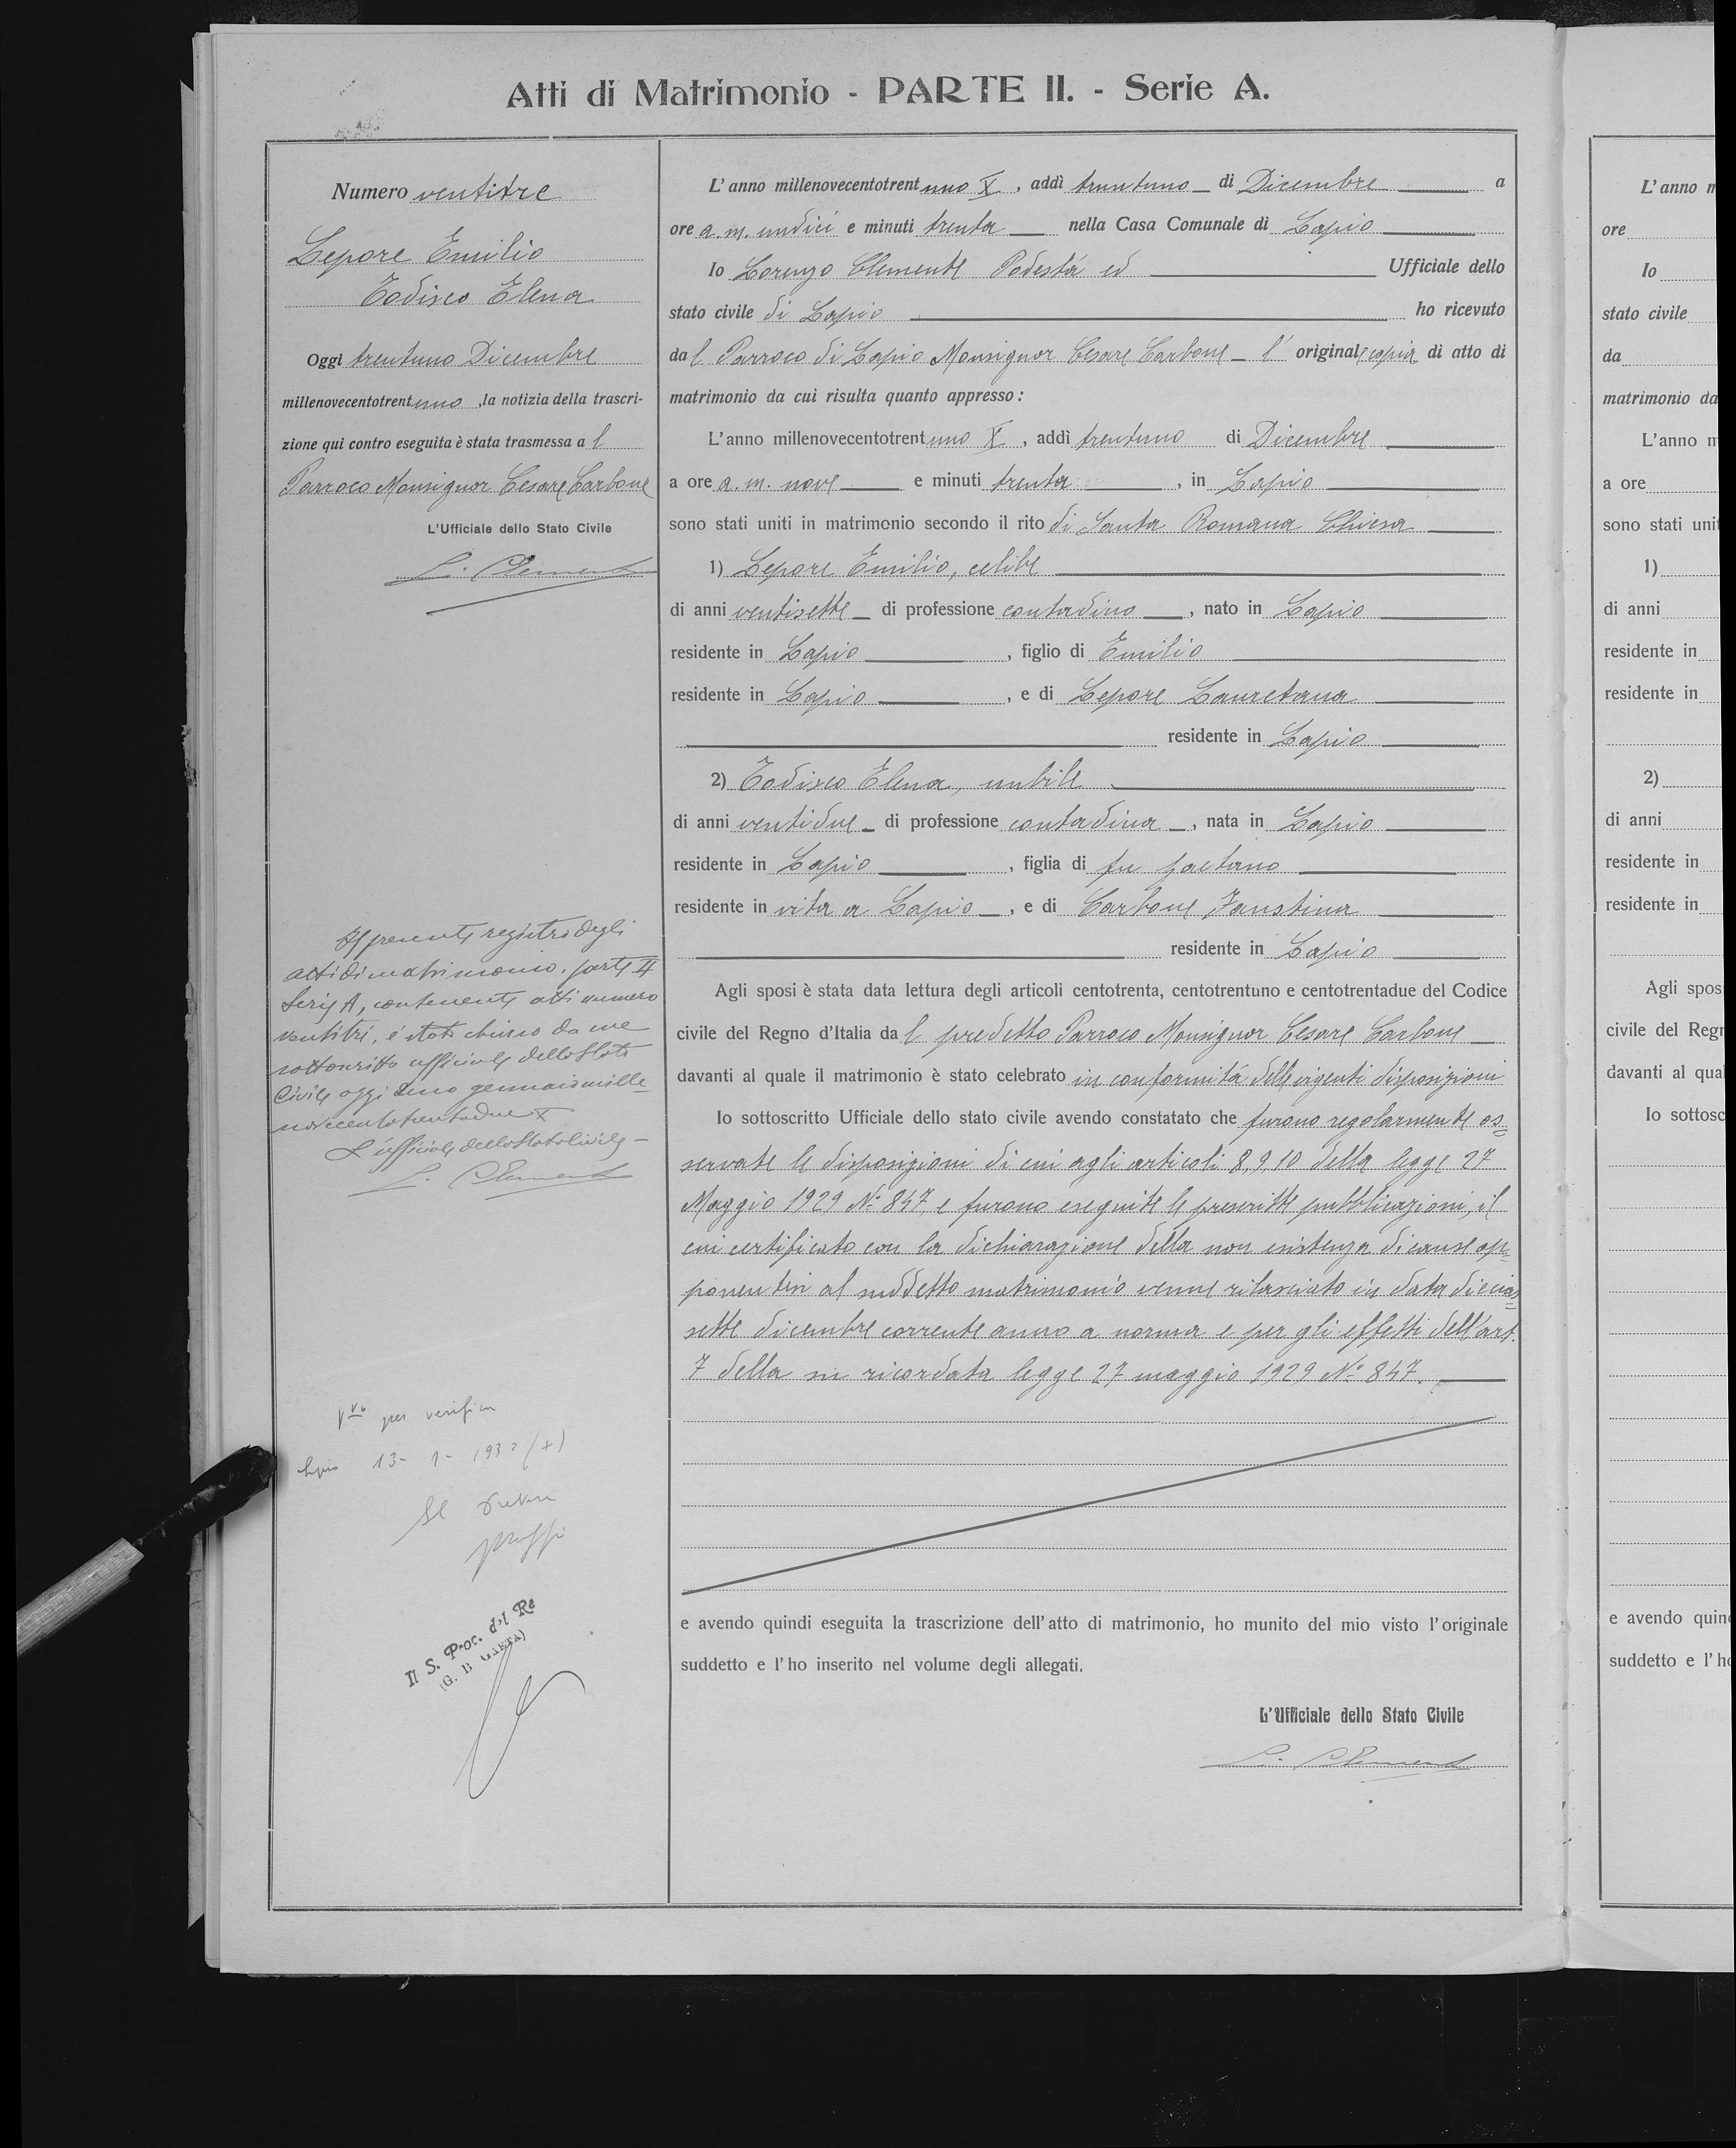 Atti di Matrimonio - PARTE II. - Serie A.
Numero ventitre
Lepore Emilio
Todisco Elena
Oggi trentuno Dicembre
millenovecentotrentuno, la notizia della trascri-
zione qui contro eseguita è stata trasmessa al
Parroco Monsignor Cesare Carbone
L'Ufficiale dello Stato Civile
L. Clemente
Il presente registro degli
atti di matrimonio, parte II
Serie A, contenente atti numero
ventitri, è stato chiuso da me
sottoscritto ufficiale dello Stato
Civile oggi uno gennaio mille
novecentotrentadue X
L'ufficiale dello Stato Civile
L. Clemente
Vto per verifica
Lapio 13-1-1932 (X)
Il
Il S. Proc. del Re
(G. B. GAETA)
L'anno millenovecentotrentuno X, addì trentuno di Dicembre a
ore a.m. undici e minuti trenta nella Casa Comunale di Lapio
Io Lorenzo Clemente Podestá ed Ufficiale dello
stato civile di Lapio ho ricevuto
dal Parroco di Lapio Monsignor Cesare Carbone - l' originale copia di atto di
matrimonio da cui risulta quanto appresso:
L'anno millenovecentotrentuno X, addì trentuno di Dicembre
a ore a.m. nove e minuti trenta, in Lapio
sono stati uniti in matrimonio secondo il rito di Santa Romana Chiesa
1) Lepore Emilio, celibe
di anni ventisette di professione contadino, nato in Lapio
residente in Lapio, figlio di Emilio
residente in Lapio, e di Lepore Lauretana
residente in Lapio
2) Todisco Elena, nubile
di anni ventidue di professione contadina, nata in Lapio
residente in Lapio, figlia di fu Gaetano
residente in vita a Lapio, e di Carbone Faustina
residente in Lapio
Agli sposi è stata data lettura degli articoli centotrenta, centotrentuno e centotrentadue del Codice
civile del Regno d'Italia dal predetto Parroco Monsignor Cesare Carbone
davanti al quale il matrimonio è stato celebrato in conformitá delle vigenti disposizioni
Io sottoscritto Ufficiale dello stato civile avendo constatato che furono regolarmente os=
servate le disposizioni di cui agli articoli 8,9,10 della legge 27
Maggio 1929 No 847, e furono eseguite le prescritte pubblicazioni, il
cui certificato con la dichiarazione della non esistenza di cause op=
ponentesi al suddetto matrimonio venne rilasciato in data dicias=
sette dicembre corrente anno a norma e per gli effetti dell'art.
7 della su ricordata legge 27 maggio 1929 No 847.
e avendo quindi eseguita la trascrizione dell'atto di matrimonio, ho munito del mio visto l'originale
suddetto e l'ho inserito nel volume degli allegati.
L'Ufficiale dello Stato Civile
L. Clemente
L'anno
ore
Io
stato civile
da
matrimonio da
L'anno
a ore
sono stati
1)
di anni
residente in
residente in
2)
di anni
residente in
residente in
Agli
civile del
davanti al
Io
e avendo
suddetto e